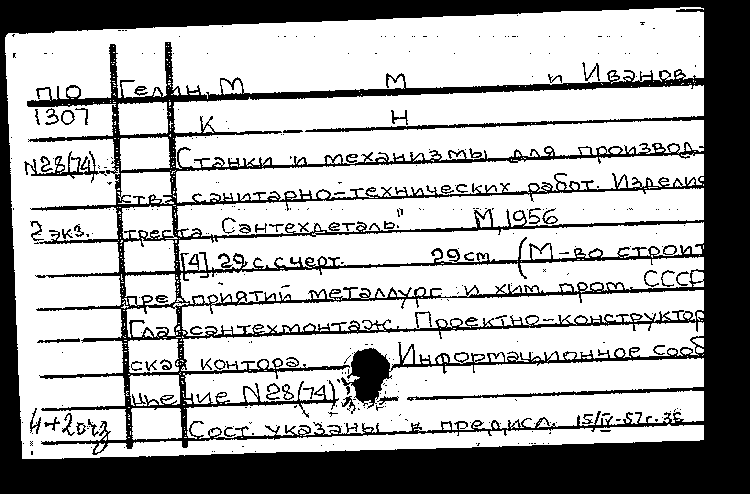 П10 Гелин, М М и Иванов,
1307 К Н
N28(74) Станки и механизмы для производ-
ства санитарно-технических работ. Изделия
2 экз. треста „Сантехдеталь" М, 1956
[4], 29 с. с черт. 29 см. (М-во строит
предприятий металлург. и хим. пром. СССР
Главсантехмонтаж. Проектно-конструктор
ская контора. Информационное сооб
щение N28(74)
4+2 Сост. указаны в предисл. 15/IV-57г.